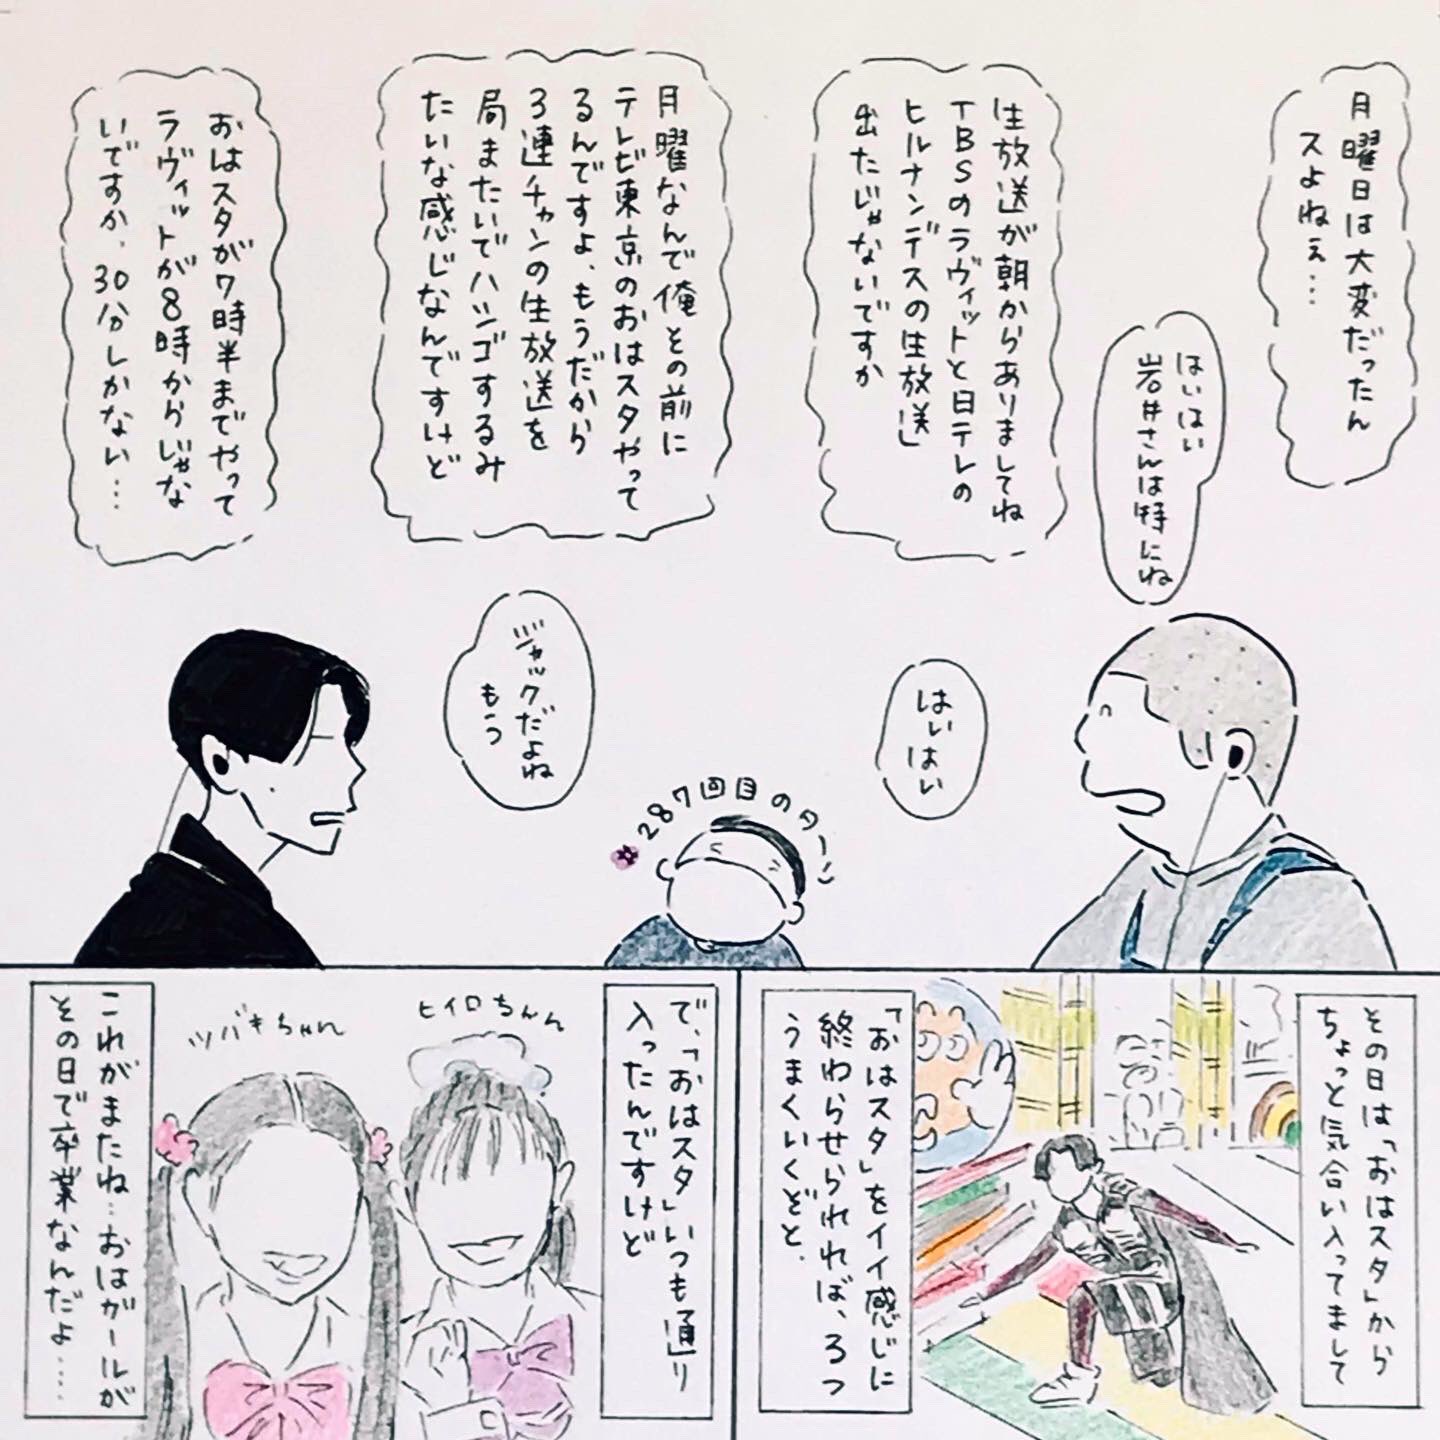 月曜日は大変だったん
スよねぇ…
はいはい
岩井さんは特にね
生放送が朝からありましてね
TBSのラヴィットと日テレの
ヒルナンデスの生放送」
出たじゃないですか
はいはい
月曜なんで俺その前に
テレビ東京のおはスタやって
るんですよ、もうだから
3連チャンの生放送を
局またいでハシゴするみ
たいな感じなんですけど
ジャックだよね
もう
おはスタが7時半までやって
ラヴィットが8時からじゃな
いですか、30分しかない…
287回目のターン
その日は「おはスタ」から
ちょっと気合い入ってまして
「おはスタ」をイイ感じに
終わらせられれば、3つ
うまくいくぞと、
で、「おはスタ」いつも通り
入ったんですけど
ヒイロちゃん
ツバキちゃん
これがまたね…おはガールが
その日で卒業なんだよ……